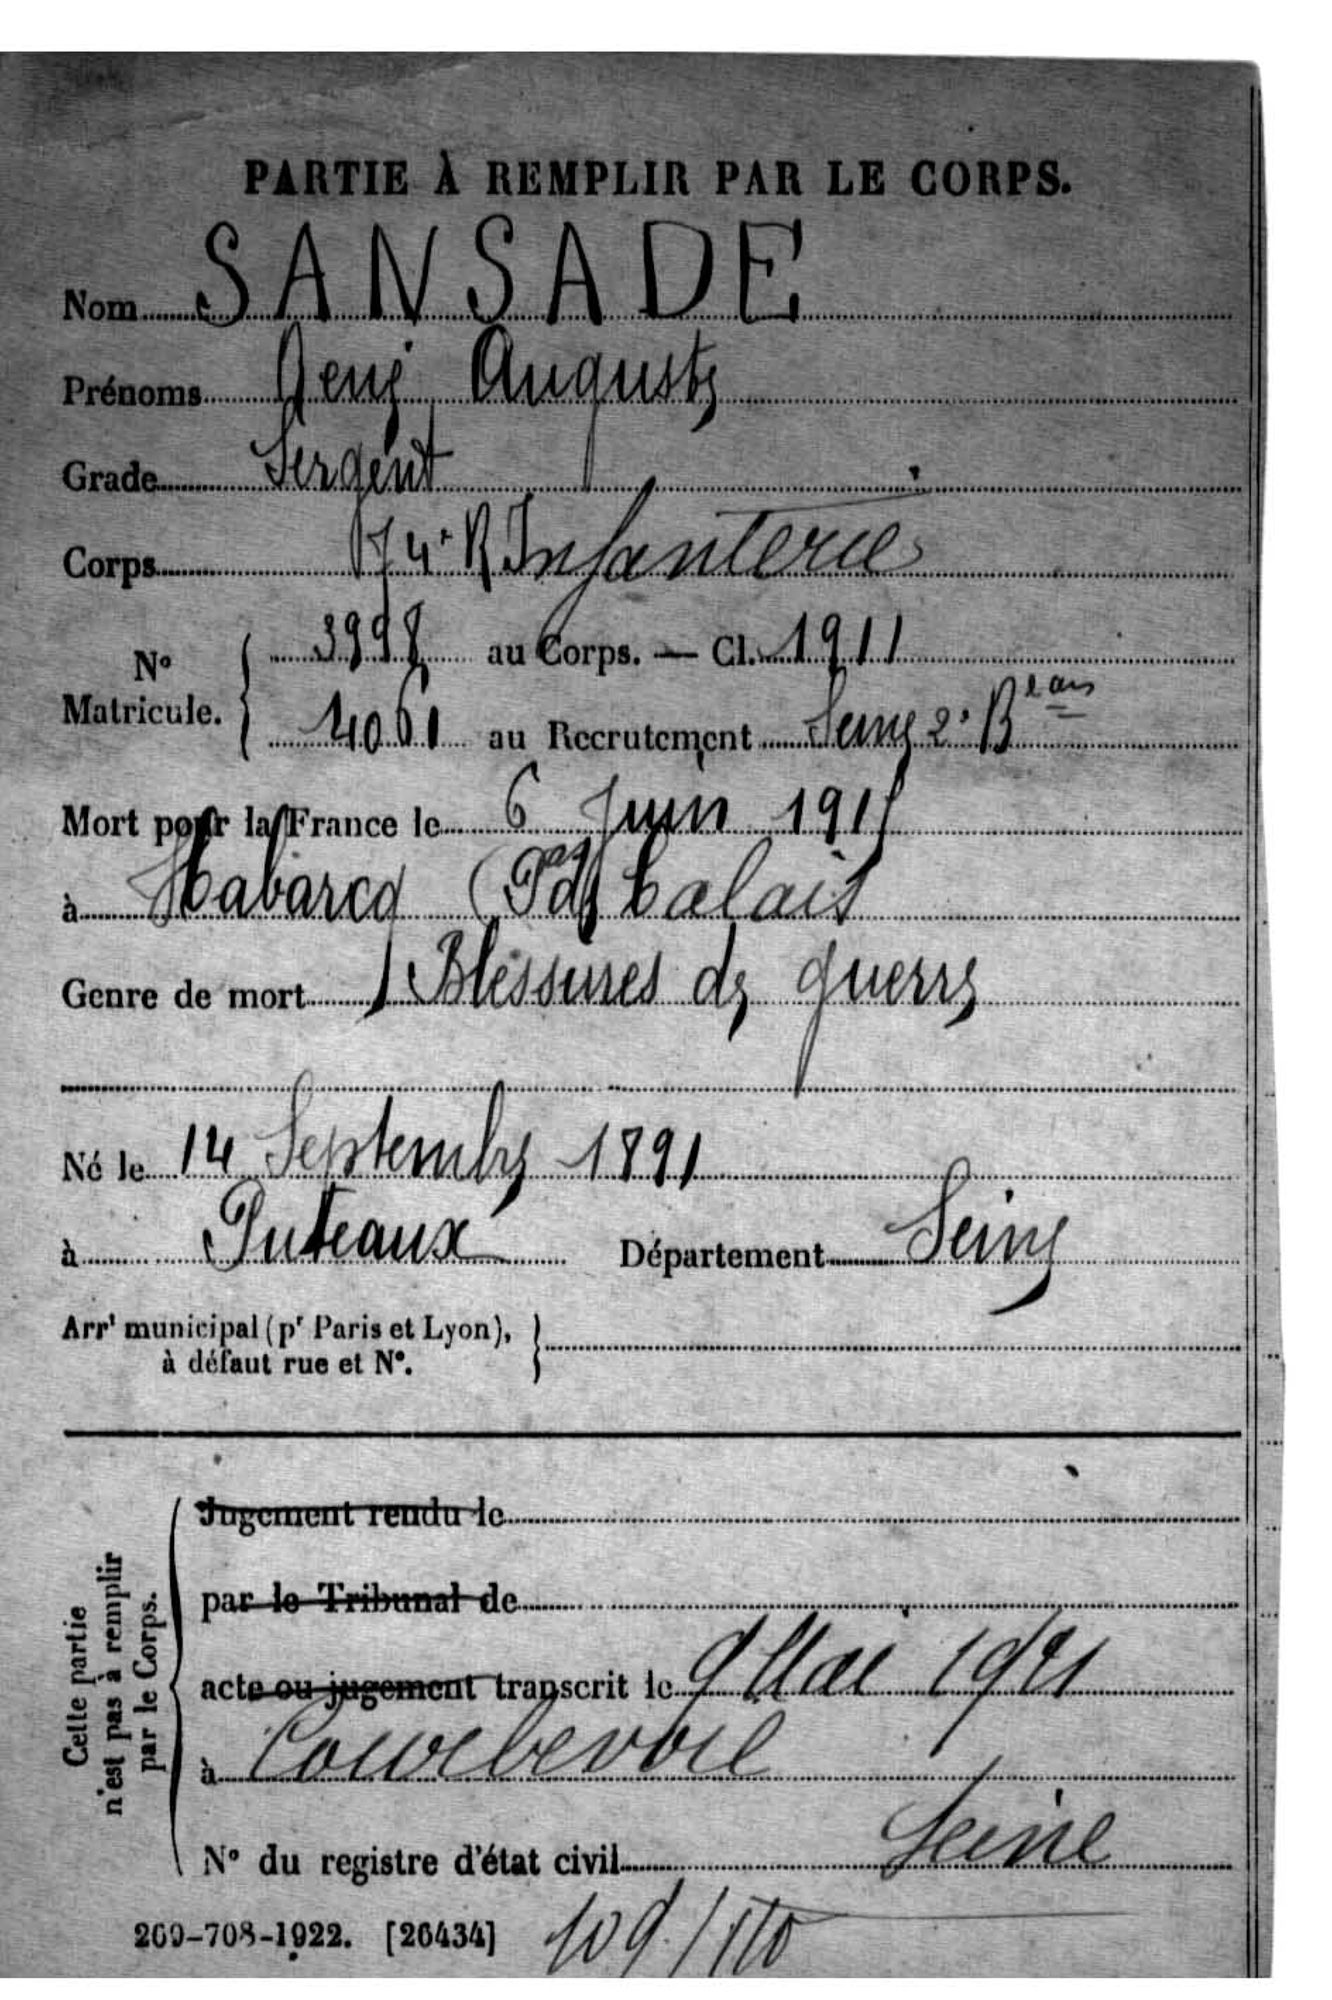 PARTIE À REMPLIR PAR LE CORPS.
Nom SANSADE
Prénoms René Auguste
Grade Sergent
Corps 74e R Infanterie
No Matricule. 3998 au Corps. — Cl. 1911
4061 au Recrutement Seine 2e Beau
Mort pour la France le 6 Juin 1915
à Habarcq (Pas de Calais
Genre de mort Blessures de guerre
Né le 14 Septembre 1891
à Puteaux Département Seine
Arrt municipal (pr Paris et Lyon),
à défaut rue et No.
Cette partie
n'est pas à remplir
par le Corps.
Jugement rendu le
par le Tribunal de
acte ou jugement transcrit le 9 Mai 1921
à Courbevoie
Seine
No du registre d'état civil
269-708-1922. [26434] 109/110